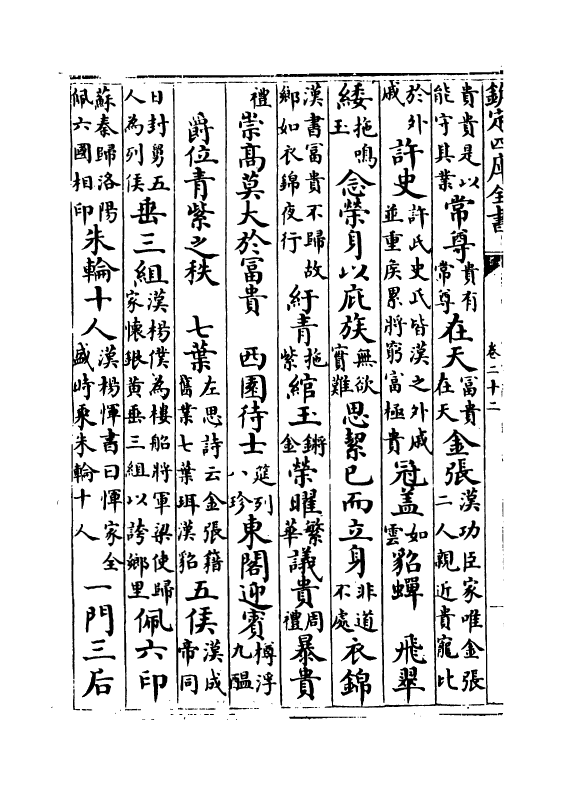 欽定四庫全書
卷二十二
貴貴是以能守其業常尊貴有常尊在天富貴在天金張漢功臣家唯金張二人親近貴寵比
於外戚許史許氏史氏皆漢之外戚並重侯累將窮富極貴冠蓋如雲貂蟬 飛翠
緌拖鳴玉念榮身以庇族無欲實難思絜已而立身非道不處衣錦
漢書富貴不歸故鄉如衣錦夜行紆青拖紫綰玉鏘金榮曜繁華議貴周禮暴貴
禮崇高莫大於富貴 西園待士筵列八珍東閣迎賓樽浮九醞
爵位青紫之秩 七葉左思詩云金張籍舊業七葉珥漢貂五侯漢成帝同
日封舅五人為列侯垂三組漢楊僕為樓船將軍梁使歸家懷銀黃垂三組以誇鄉里佩六印
蘇秦歸洛陽佩六國相印朱輪十人漢楊惲書曰惲家全盛時乘朱輪十人一門三后